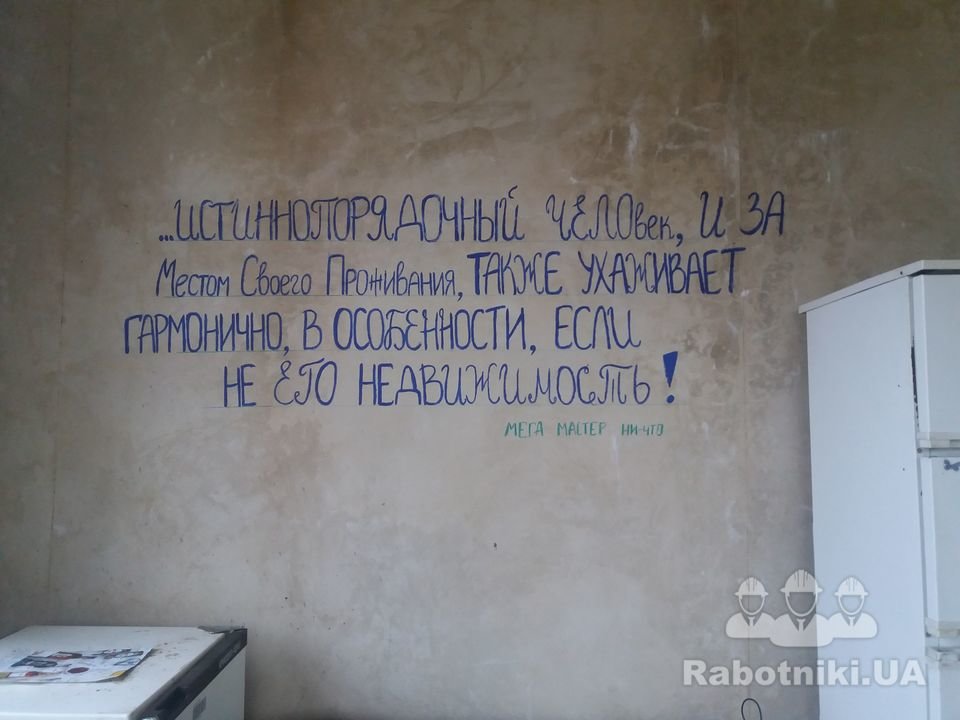 ...ИСТИННОПОРЯДОЧНЫЙ ЧЕЛОвек, И ЗА
Местом Своего Проживания, ТАКЖЕ УХАЖИВАЕТ
ГАРМОНИЧНО, В ОСОБЕННОСТИ, ЕСЛИ
НЕ ЕГО НЕДВИЖИМОСТЬ!
МЕГА МАСТЕР НИ-ЧТО
Rabotniki.UA